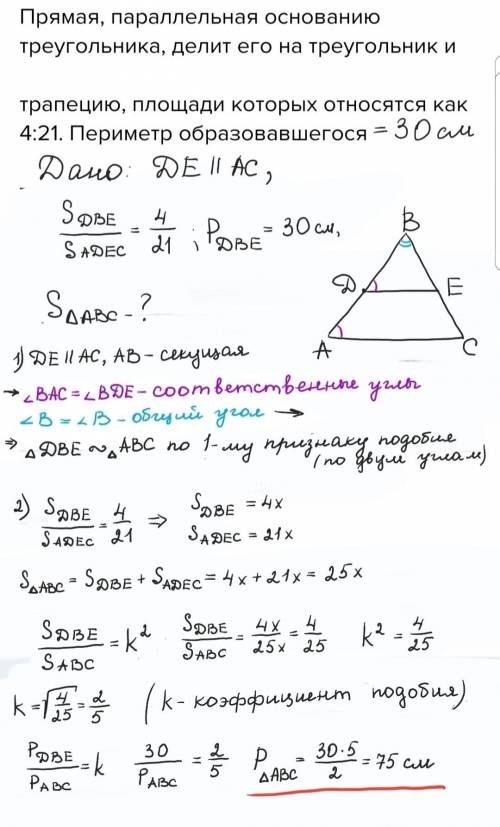 Прямая, параллельная основанию
треугольника, делит его на треугольник и
трапецию, площади которых относятся как
4:21. Периметр образовавшегося = 30 см
Дано: DE || AC,
S_DBE / S_ADEC = 4/21 ; P_DBE = 30 см,
B
D E
A C
S△ABC - ?
1) DE || AC, AB - секущая
→ ∠BAC = ∠BDE - соответственные углы
∠B = ∠B - общий угол →
⇒ △DBE ∾ △ABC по 1-му признаку подобия
(по двум углам)
2) S_DBE / S_ADEC = 4/21 ⇒ S_DBE = 4x
S_ADEC = 21x
S△ABC = S_DBE + S_ADEC = 4x + 21x = 25x
S_DBE / S_ABC = k² S_DBE / S_ABC = 4x/25x = 4/25 k² = 4/25
k = √4/25 = 2/5 (k - коэффициент подобия)
P_DBE / P_ABC = k 30 / P_ABC = 2/5 P△ABC = 30·5/2 = 75 см